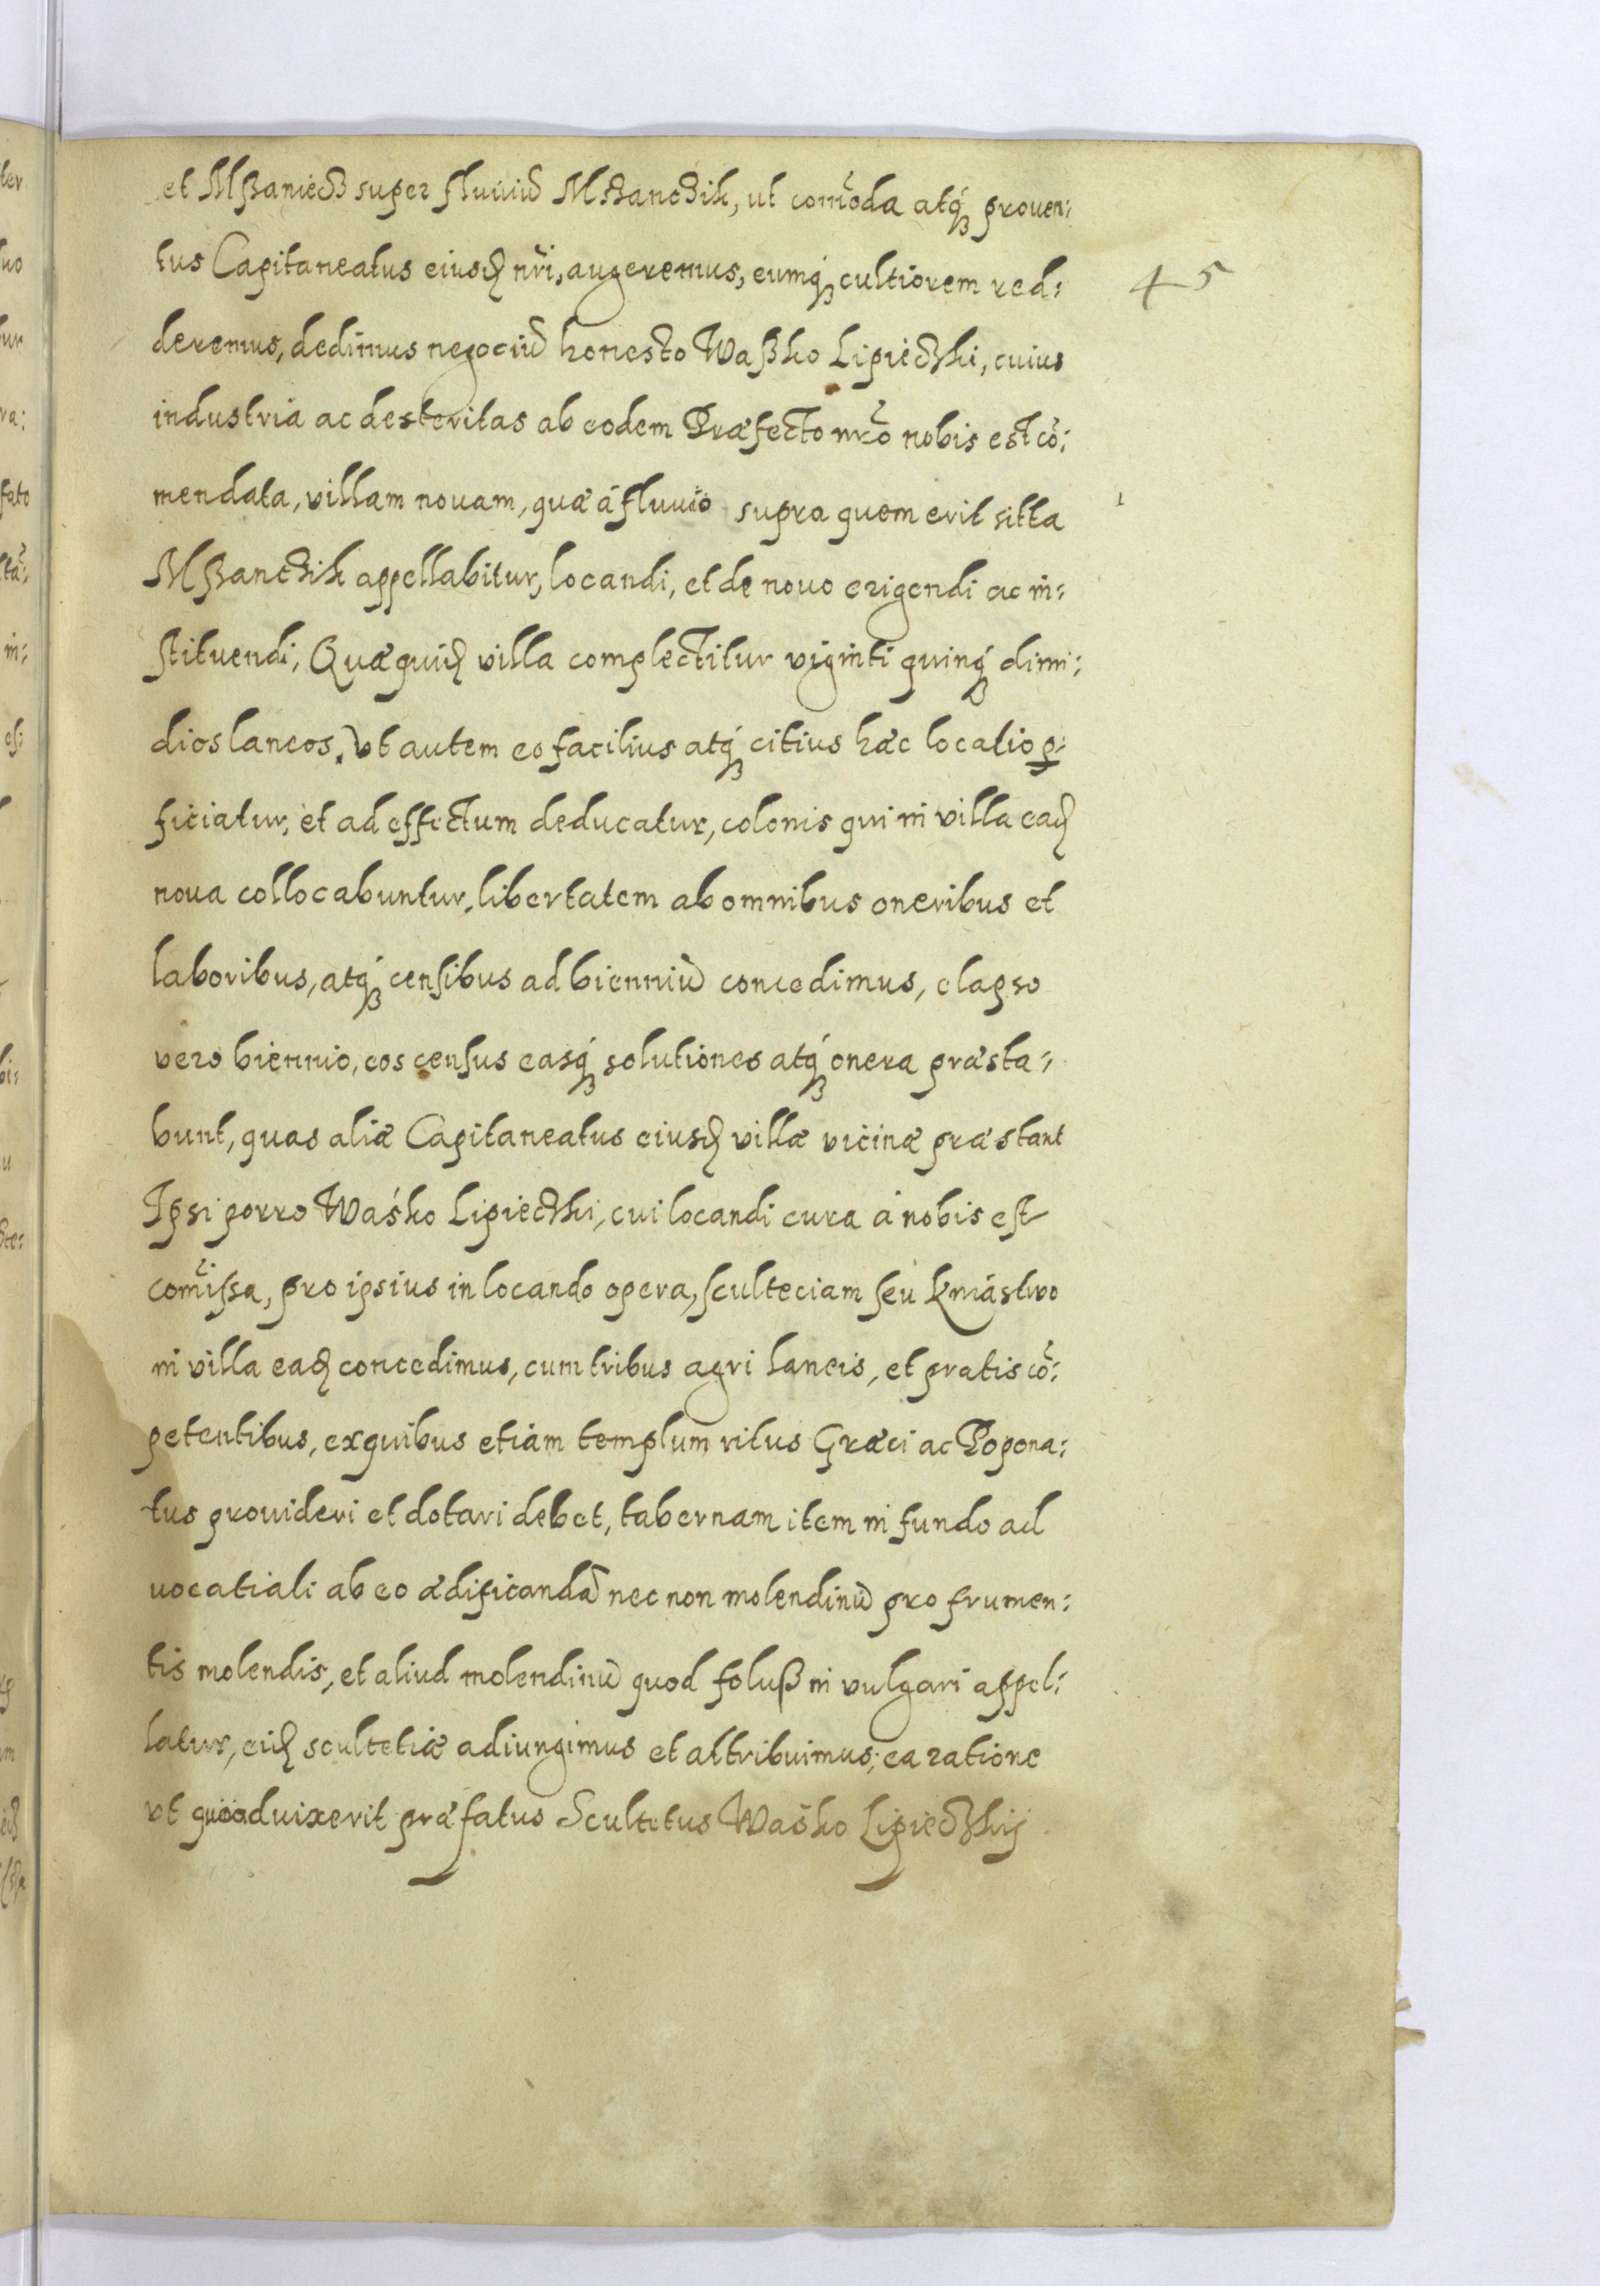 et Mßaniecz super fluuiũ Mßanczik, ut com̃oda atq́ꝫ prouen:
tus Capitaneatus eiusđ nr̃i, augeremus, eumq́ꝫ cultiorem red:
deremus, dedimus negociũ honesto Waßko Lipieczki, cuius
industria ac desteritas ab eodem Præfecto nr̃o nobis est cõ:
mendata, villam nouam, quæ á fluuio supra quem erit sitta
Mßanczik appellabitur, locandi, et de nouo erigendi ac in:
stituendi, Quæquiđ villa complectitur viginti quinq́ꝫ dimi:
dios laneos. Vt autem eo facilius atq́ꝫ citius hæc locatio ꝑ:
ficiatur, et ad effectum deducatur, colonis qui in villa eađ
noua collocabuntur, libertatem ab omnibus oneribus et
laboribus, atq́ꝫ censibus ad bienniũ concedimus, elapso
vero biennio, eos census easq́ꝫ solutiones atq́ꝫ onera præsta:
bunt, quas aliæ Capitaneatus eiusđ villæ vicinæ præstant
Ipsi porro Waśko Lipieczki, cui locandi cura á nobis est
com̃issa, pro ipsius in locando opera, sculteciam seu kniástwo
in villa eađ concedimus, cum tribus agri laneis, et pratis cõ:
petentibus, ex quibus etiam templum ritus Græci ac Popona:
tus prouideri et dotari debet, tabernam item in fundo ad
uocatiali ab eo ædificandã nec non molendinũ pro frumen:
tis molendis, et aliud molendinũ quod foluß in vulgari appel:
latur, eiđ scultetiæ adiungimus et attribuimus; ea ratione
vt quoaduixerit præfatus Scultetus Waśko Lipieczkij
45